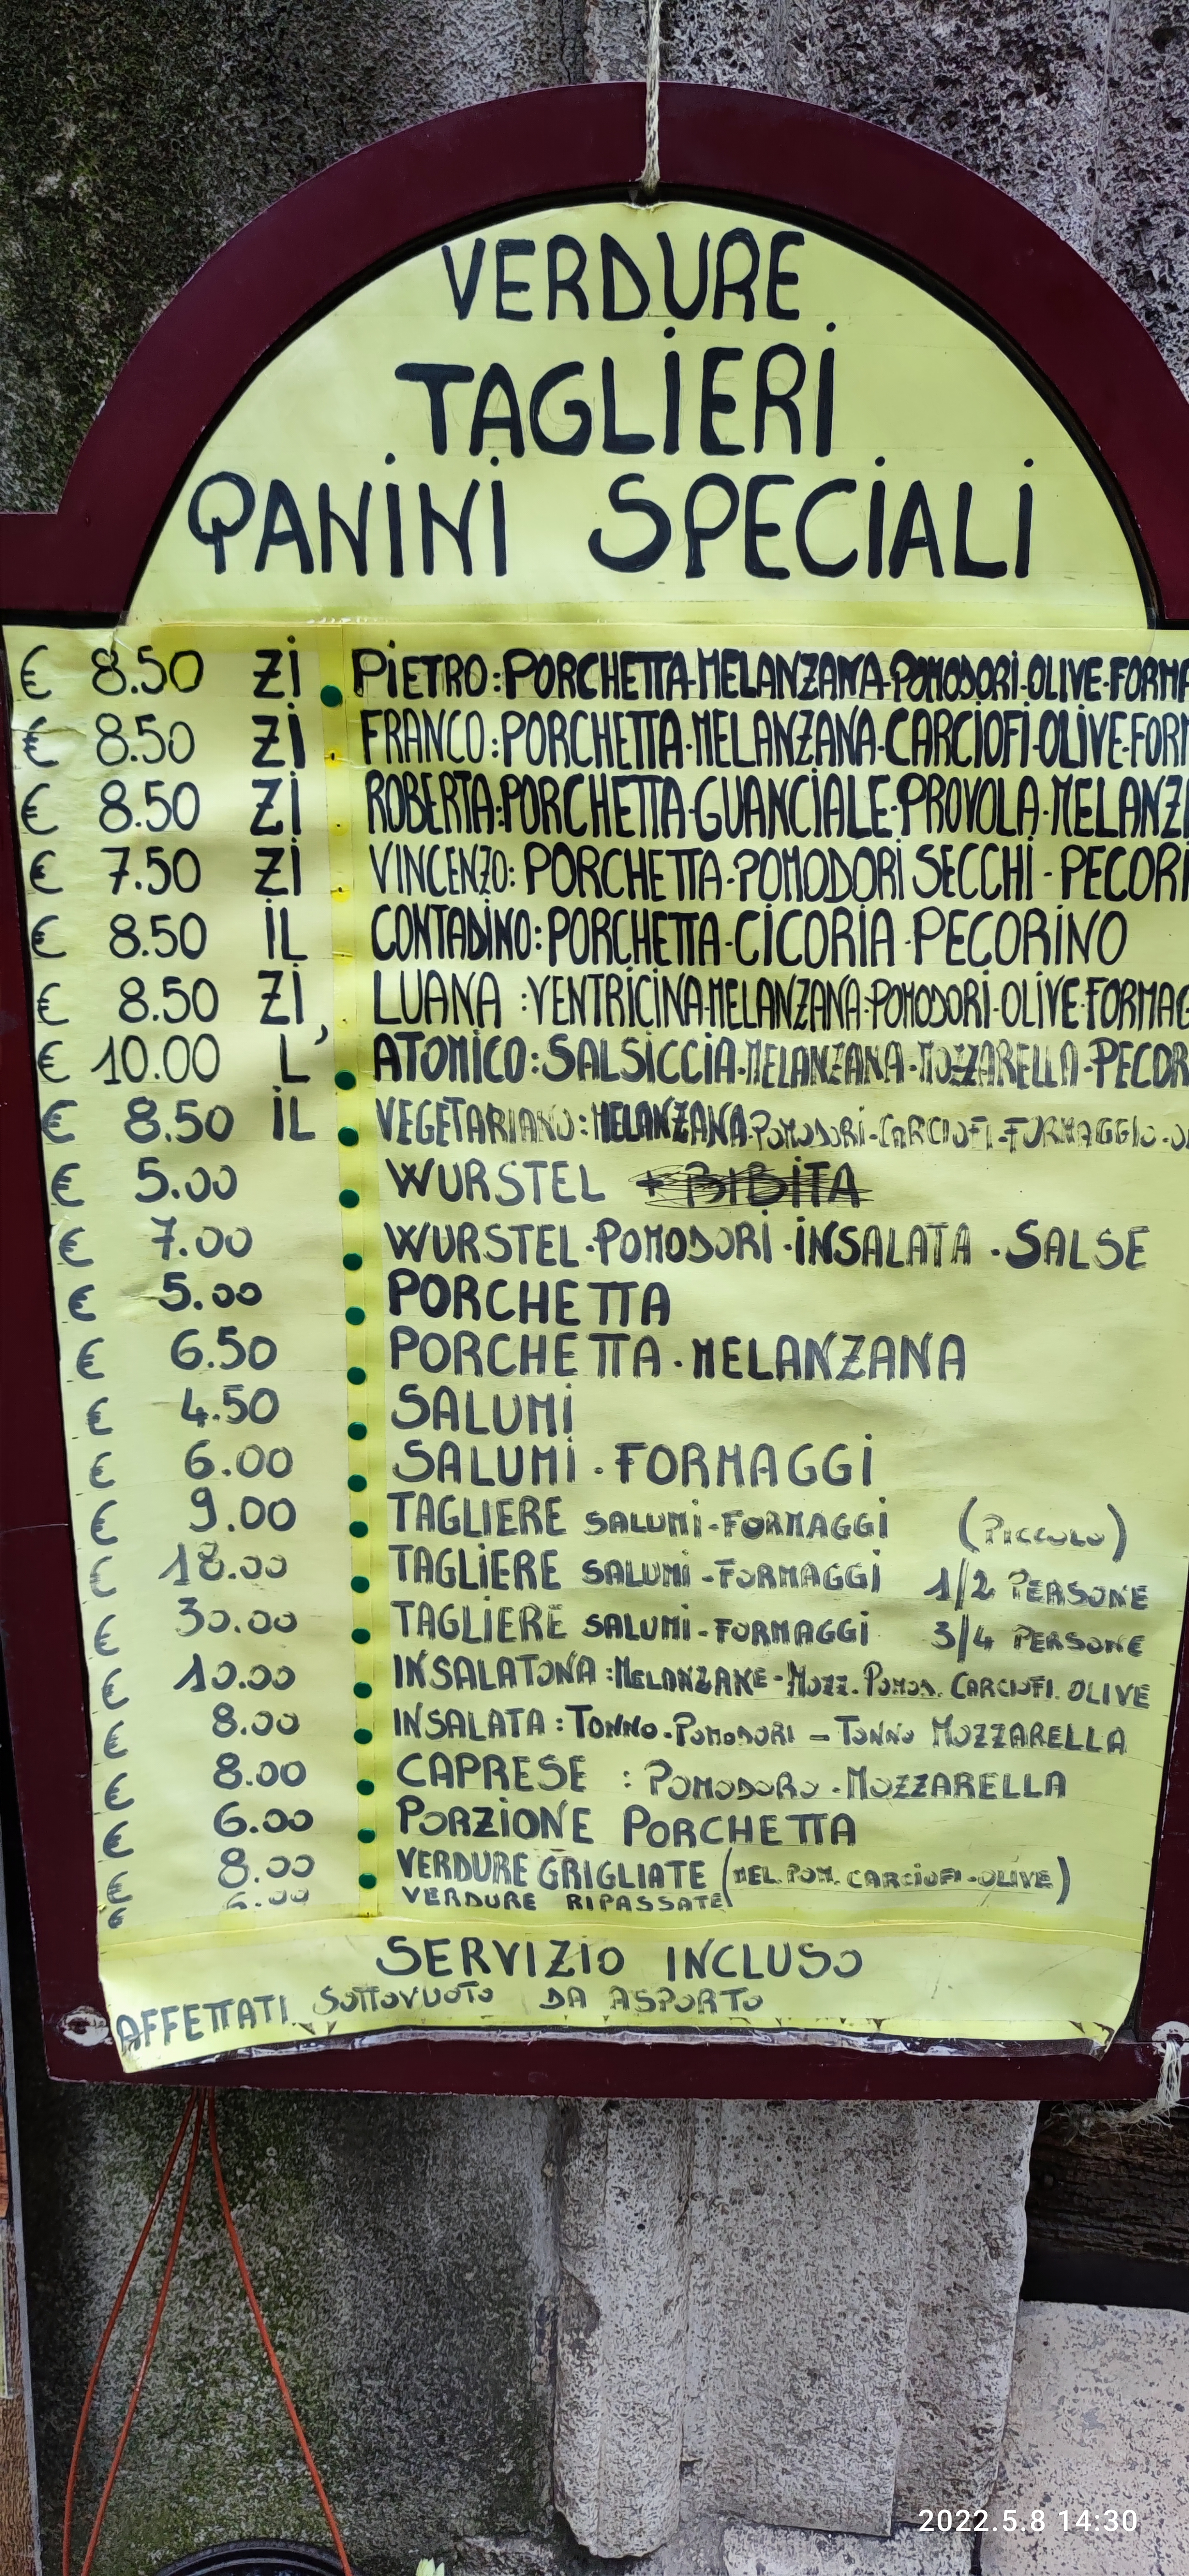 VERDURE
TAGLIERI
PANINI SPECIALI
€ 8.50 Zi PiETRO: PORCHETTA-MELANZANA-POMODORI-OLIVE-FORMA
€ 8.50 Zi FRANCO: PORCHETTA-MELANZANA-CARCiOFi-OLiVE-FORM
€ 8.50 Zi ROBERTA: PORCHETTA-GUANCiALE-PROVOLA-MELANZ
€ 7.50 Zi VINCENZO: PORCHETTA-POMODORi SECCHi - PECORi
€ 8.50 iL CONTADiNO: PORCHETTA-CiCORiA-PECORiNO
€ 8.50 Zi LUANA: VENTRiCiNA-MELANZANA-POMODORI-OLIVE-FORMAG
€ 10.00 L' ATOMiCO: SALSiCCiA-MELANZANA-MOZZARELLA-PECOR
€ 8.50 iL VEGETARIANO: MELANZANA-POMODORi-CARCIOFI-FORMAGGIO-O
€ 5.00 WURSTEL + BIBiTA
€ 7.00 WURSTEL-POMODORi-iNSALATA-SALSE
€ 5.00 PORCHETTA
€ 6.50 PORCHETTA-MELANZANA
€ 4.50 SALUMi
€ 6.00 SALUMi-FORMAGGi
€ 9.00 TAGLIERE SALUMi-FORMAGGi (PICCOLO)
€ 18.00 TAGLiERE SALUMi-FORMAGGi 1/2 PERSONE
€ 30.00 TAGLiERE SALUMi-FORMAGGi 3/4 PERSONE
€ 10.00 INSALATONA: MELANZANE-MOZZ. POMOD. CARCIOFI. OLIVE
€ 8.00 INSALATA: TONNO-POMODORI - TONNO MOZZARELLA
€ 8.00 CAPRESE: POMODORO-MOZZARELLA
€ 6.00 PORZiONE PORCHETTA
€ 8.00 VERDURE GRIGLIATE (MEL. POM. CARCiOFI-OLIVE)
€ 6.00 VERDURE RIPASSATE
SERVIZiO INCLUSO
AFFETTATI SOTTOVUOTO DA ASPORTO
2022.5.8 14:30